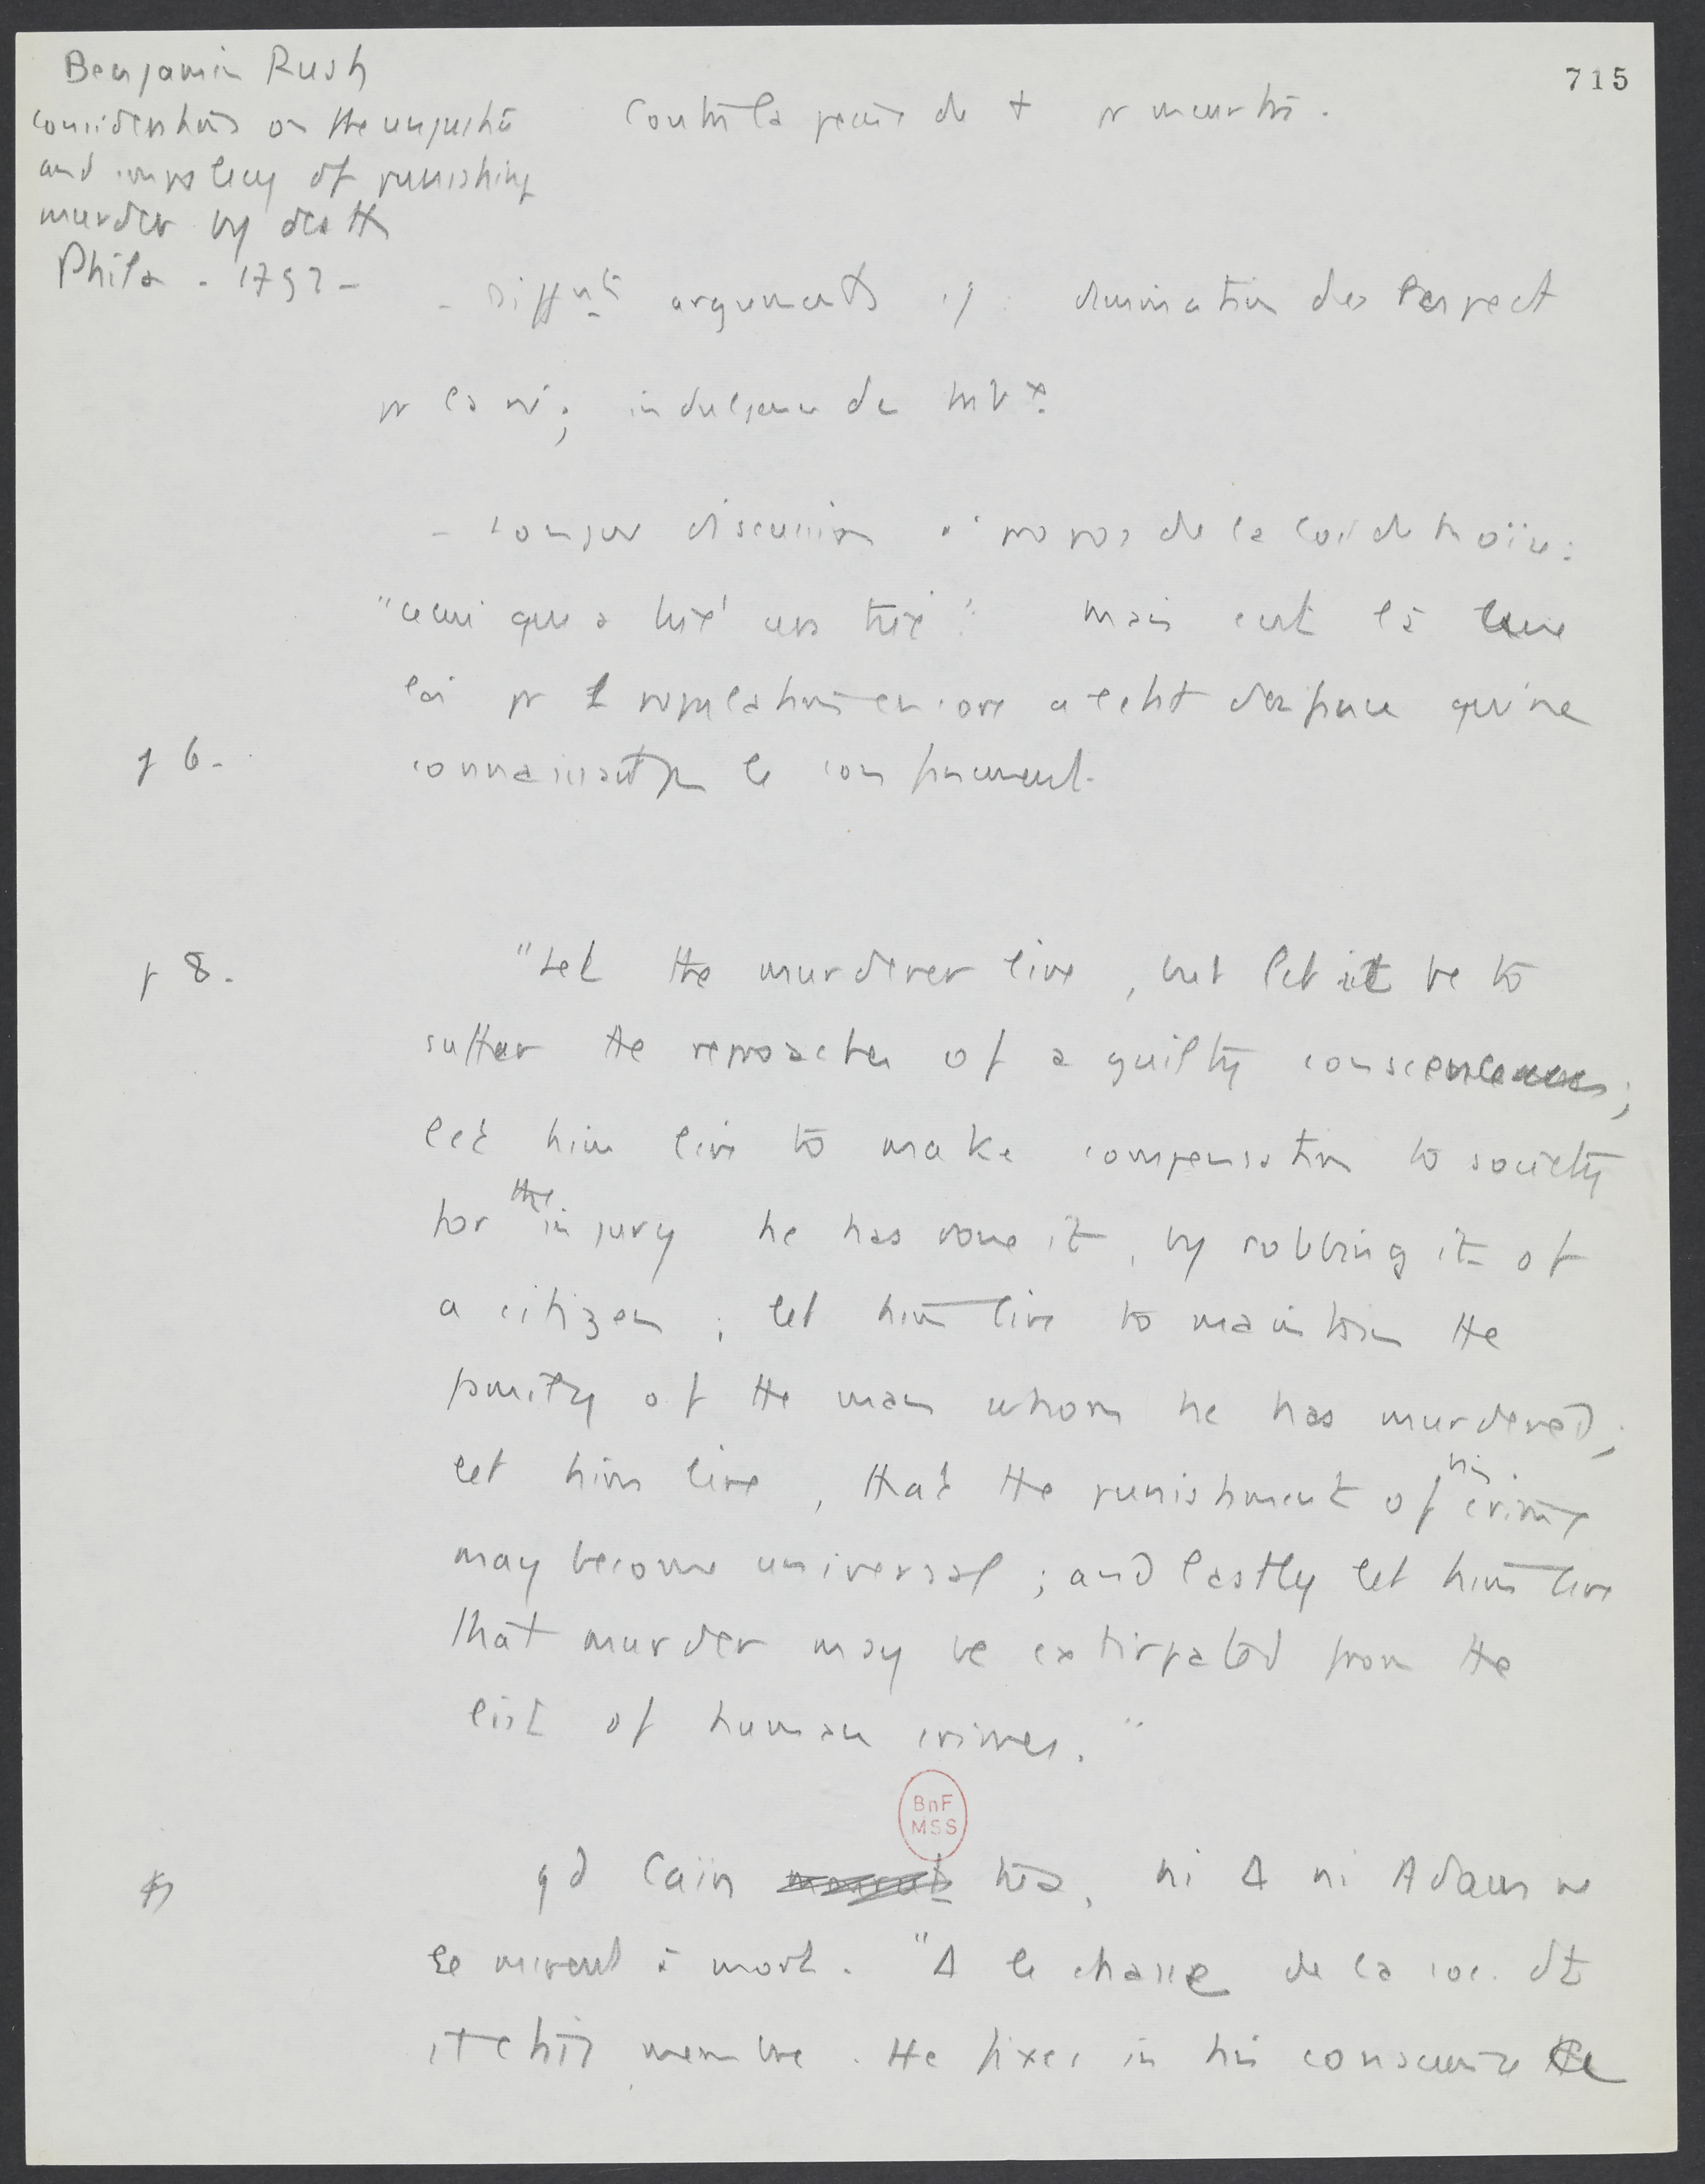 715
Benjamin Rush
considerations on the unjustice
and impolicy of punishing
murder by death
Phila - 1792 -
Contre la peine de † pr meurtre.
- Diffts arguments : diminution du respect
pr la vie ; indulgence des
- Longue discussion à propos de la loi de Moïse :
"celui qui a tué sera tué". Mais c'est là une
loi pr 1 population encore à l'état qui ne
p 6. connaissait pas le confinement.
p 8. "Let the murderer live, but let it be to
suffer the reproaches of a guilty conscience ;
let him live to make compensation to society
for the injury he has done it, by robbing it of
a citizen ; let him live to maintain the
family of the man whom he has murdered ;
let him live, that the punishment of his crime
may become universal ; and lastly let him live
that murder may be extirpated from the
list of human crimes."
BnF
MSS
qd Caïn tua, ni Δ ni Adam ne
le mirent à mort. "Δ le chasse de la soc. dt
il était membre. He fixes in his conscience the